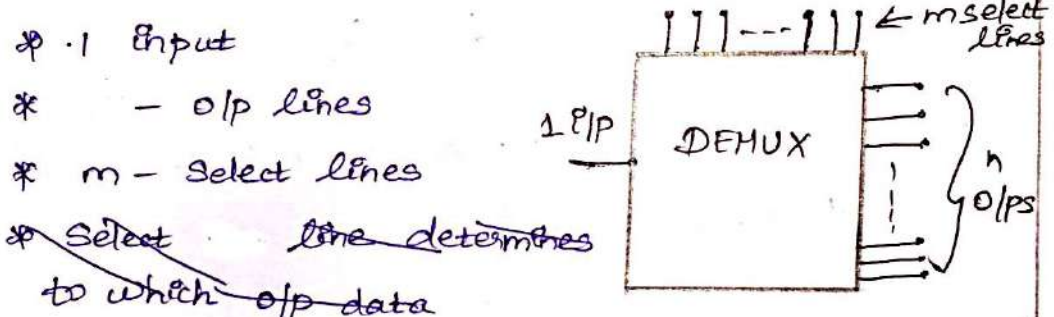 * . 1 input
* - o/p lines
* m - Select lines
* Select line determines
to which o/p data
← m select
lines
1 i/p
DEMUX
n
o/ps